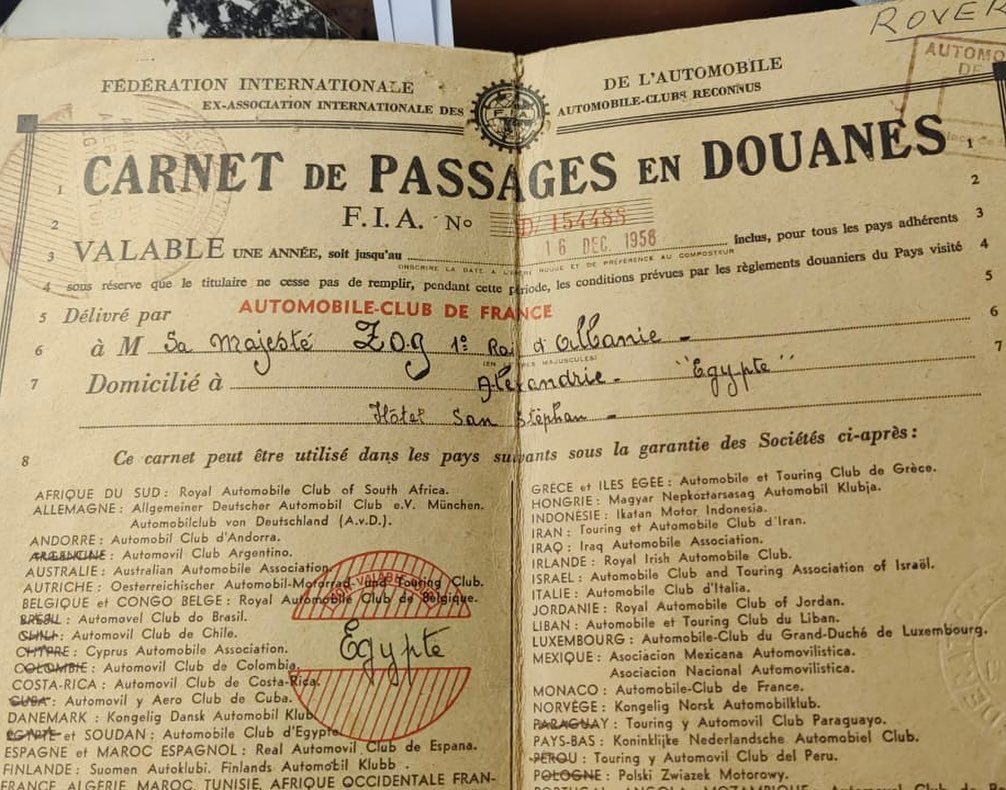 ROVER
AUTOMO
DE
FÉDÉRATION INTERNATIONALE DE L'AUTOMOBILE
EX-ASSOCIATION INTERNATIONALE DES AUTOMOBILE-CLUBS RECONNUS
F.I.A.
1 CARNET DE PASSAGES EN DOUANES 1
2 F.I.A. No D/ 154488 2
16 DEC. 1956
3 VALABLE UNE ANNÉE, soit jusqu'au inclus, pour tous les pays adhérents 3
INSCRIRE LA DATE A L'ENCRE ROUGE ET DE PRÉFÉRENCE AU COMPOSTEUR
4 sous réserve que le titulaire ne cesse pas de remplir, pendant cette période, les conditions prévues par les règlements douaniers du Pays visité 4
5 Délivré par AUTOMOBILE-CLUB DE FRANCE 5
6 à M Sa Majesté ZOG 1º Roi d'Albanie - 6
MAJUSCULES)
7 Domicilié à Alexandrie - "Egypte" 7
Hôtel San Stéphan -
8 Ce carnet peut être utilisé dans les pays suivants sous la garantie des Sociétés ci-après :
AFRIQUE DU SUD : Royal Automobile Club of South Africa.
ALLEMAGNE : Allgemeiner Deutscher Automobil Club e.V. München.
Automobilclub von Deutschland (A.v.D.).
ANDORRE : Automobil Club d'Andorra.
ARGENTINE : Automovil Club Argentino.
AUSTRALIE : Australian Automobile Association.
AUTRICHE : Oesterreichischer Automobil-Motorrad- und Touring Club.
BELGIQUE et CONGO BELGE : Royal Automobile Club de Belgique.
BRESIL : Automovel Club do Brasil.
CHILI : Automovil Club de Chile.
CHYPRE : Cyprus Automobile Association.
COLOMBIE : Automovil Club de Colombia.
COSTA-RICA : Automovil Club de Costa-Rica.
CUBA : Automovil y Aero Club de Cuba.
DANEMARK : Kongelig Dansk Automobil Klub
EGYPTE et SOUDAN : Automobile Club d'Egypte.
ESPAGNE et MAROC ESPAGNOL : Real Automovil Club de Espana.
FINLANDE : Suomen Autoklubi. Finlands Automobil Klubb .
FRANCE, ALGÉRIE, MAROC, TUNISIE, AFRIQUE OCCIDENTALE FRAN-
Egypte
GRÈCE et ILES ÉGÉE : Automobile et Touring Club de Grèce.
HONGRIE : Magyar Nepkoztarsasag Automobil Klubja.
INDONÉSIE : Ikatan Motor Indonesia.
IRAN : Touring et Automobile Club d'Iran.
IRAQ : Iraq Automobile Association.
IRLANDE : Royal Irish Automobile Club.
ISRAEL : Automobile Club and Touring Association of Israël.
ITALIE : Automobile Club d'Italia.
JORDANIE : Royal Automobile Club of Jordan.
LIBAN : Automobile et Touring Club du Liban.
LUXEMBOURG : Automobile-Club du Grand-Duché de Luxembourg.
MEXIQUE : Asociacion Mexicana Automovilistica.
Asociacion Nacional Automovilistica.
MONACO : Automobile-Club de France.
NORVÈGE : Kongelig Norsk Automobilklub.
PARAGUAY : Touring y Automovil Club Paraguayo.
PAYS-BAS : Koninklijke Nederlandsche Automobiel Club.
PÉROU : Touring y Automovil Club del Peru.
POLOGNE : Polski Zwiazek Motorowy.